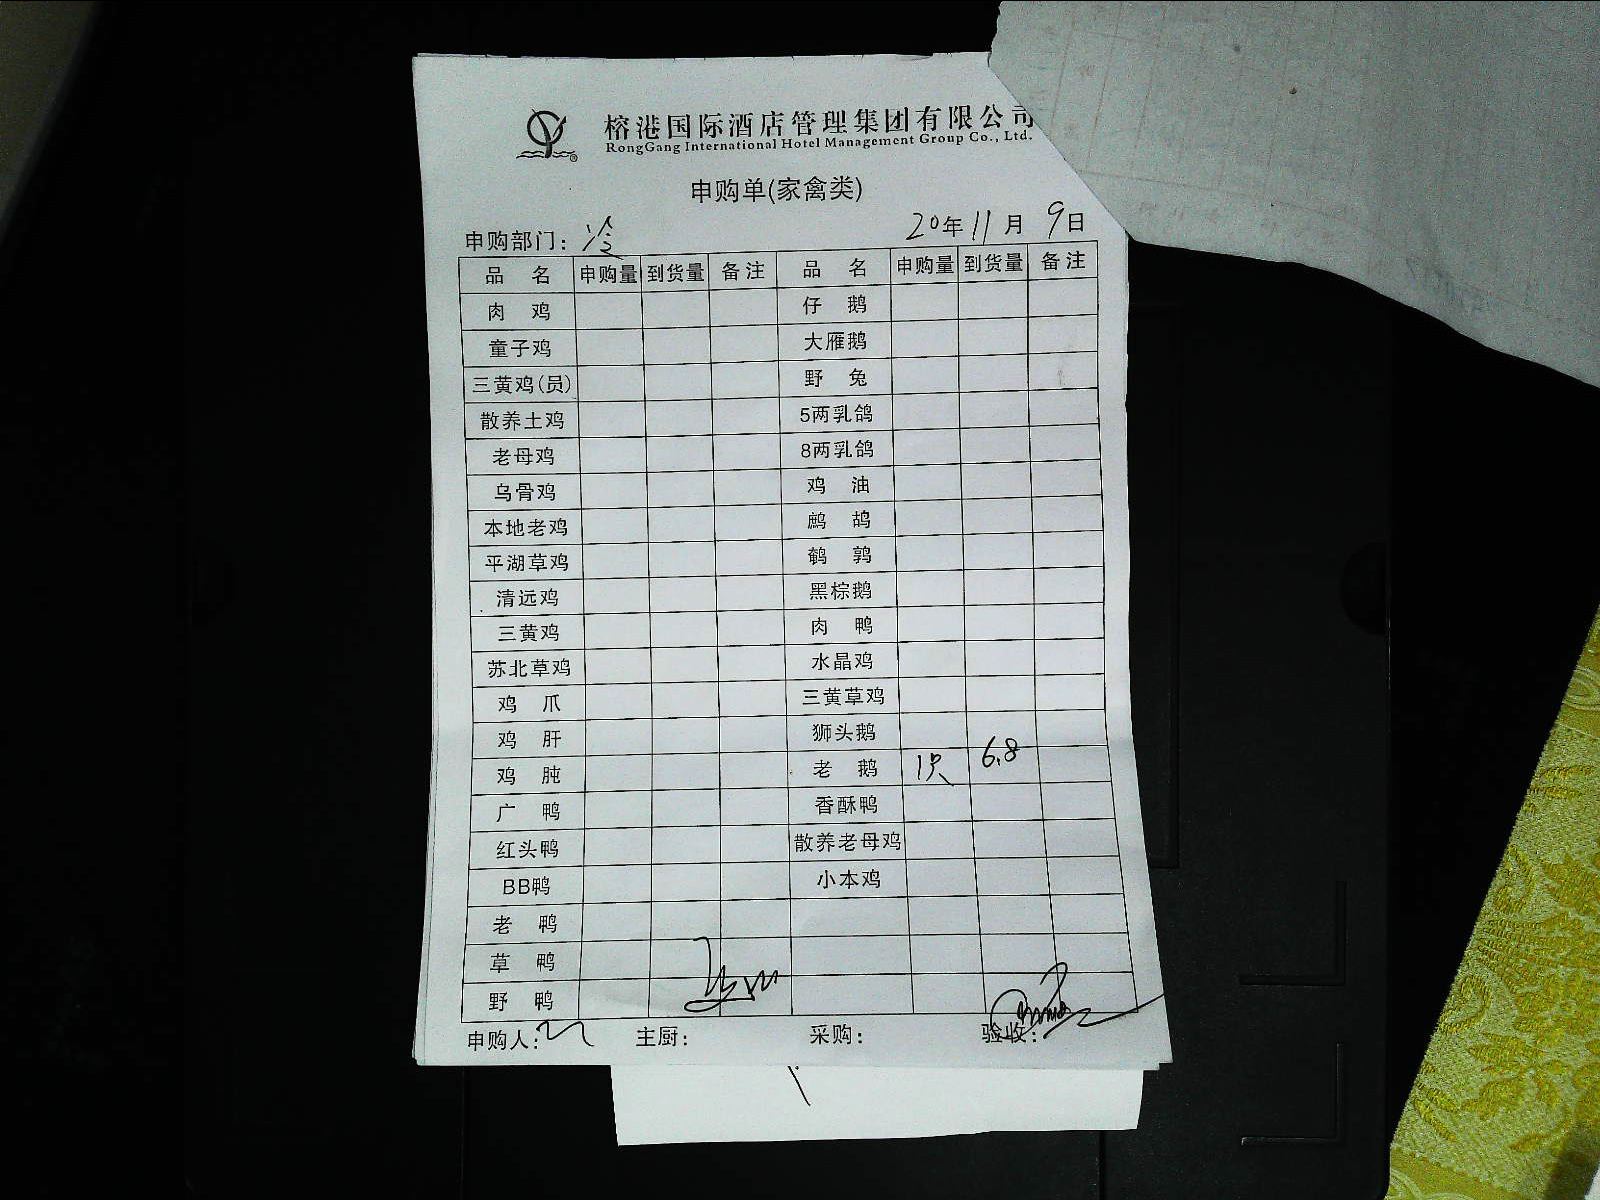 榕港国际酒店管理集团有限公司
RongGang International Hotel Management Group Co., Ltd.
申购单(家禽类)
申购部门: 冷 20年11月9日
品名 申购量 到货量 备注 品名 申购量 到货量 备注
肉鸡 仔鹅
童子鸡 大雁鹅
三黄鸡(员) 野兔
散养土鸡 5两乳鸽
老母鸡 8两乳鸽
乌骨鸡 鸡油
本地老鸡 鹧鸪
平湖草鸡 鹌鹑
清远鸡 黑棕鹅
三黄鸡 肉鸭
苏北草鸡 水晶鸡
鸡爪 三黄草鸡
鸡肝 狮头鹅
鸡肫 老鹅 1只 6.8
广鸭 香酥鸭
红头鸭 散养老母鸡
BB鸭 小本鸡
老鸭
草鸭
野鸭
申购人: 主厨: 采购: 验收: